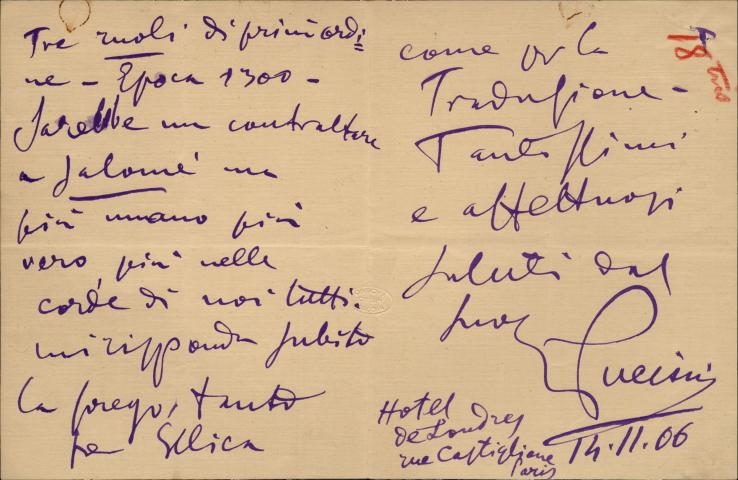 Tre ruoli di primiordi=
ne - Epoca 1300 -
Sarebbe un contraltare
a Salomè ma
più umano più
vero, più nelle
corde di noi tutti.
mi risponda subito
la prego, tanto
per Ellica
come per la
Traduzione -
Tantissimi
e affettuosi
saluti dal
suo
Puccini
Hotel
de Londres
rue Castiglione
Paris
14.11.06
18